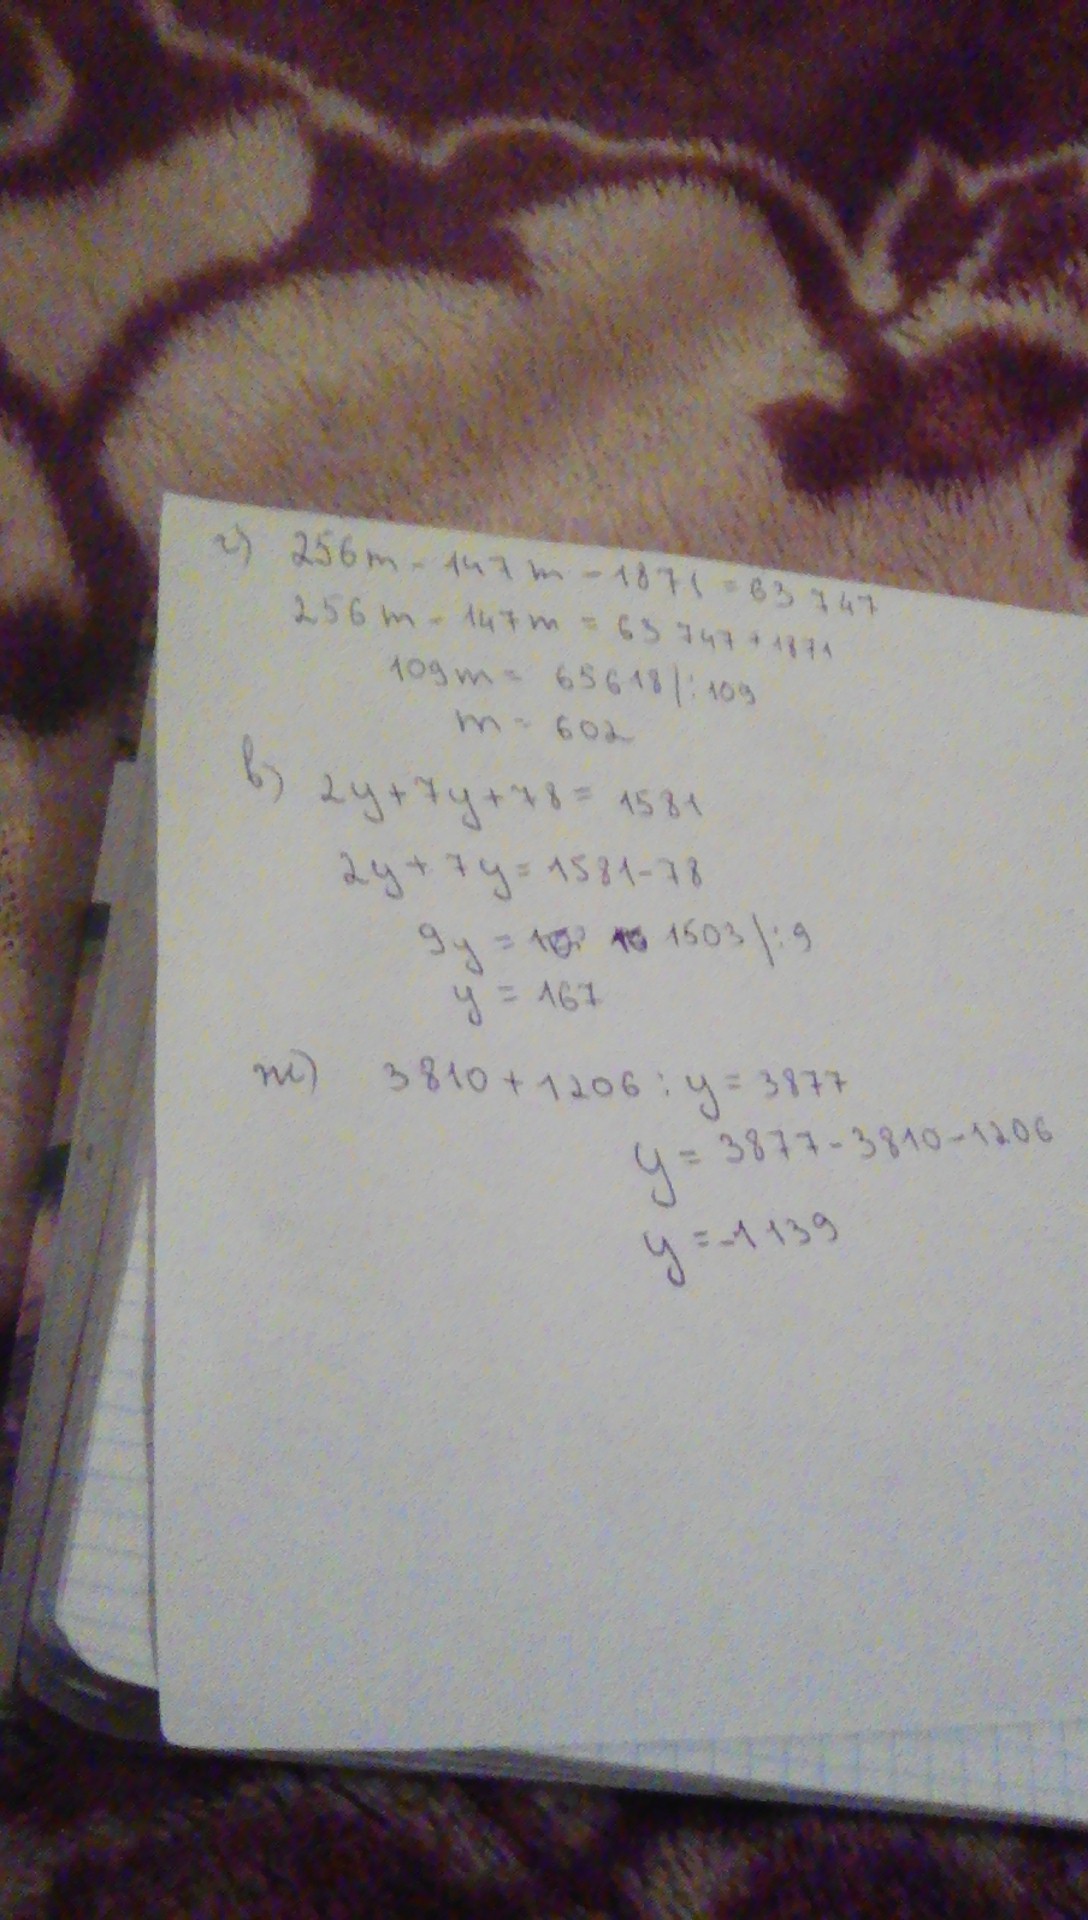 г) 256m - 147m - 1871 = 63 747
256m - 147m = 63 747 + 1871
109m = 65618 |: 109
m = 602
в) 2y + 7y + 78 = 1581
2y + 7y = 1581 - 78
9y = 1503 |: 9
y = 167
ж) 3810 + 1206 : y = 3877
y = 3877 - 3810 - 1206
y = -1139